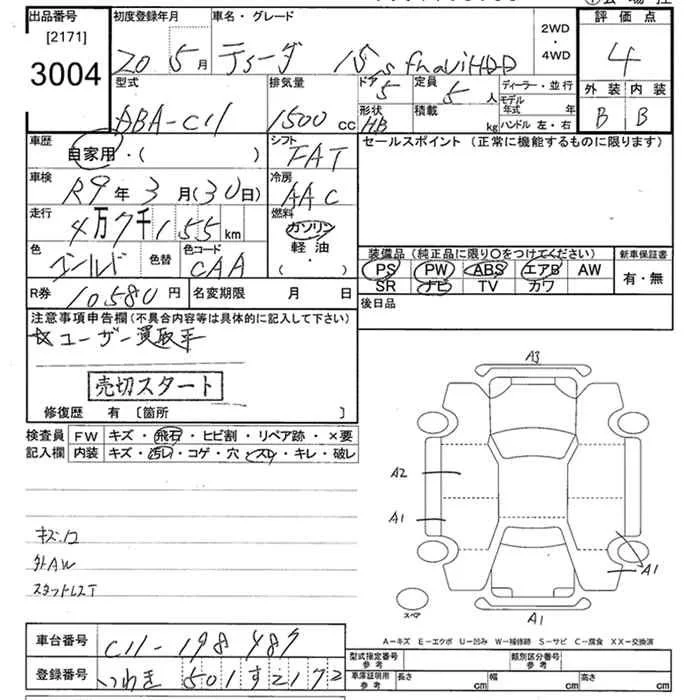 出品番号 初度登録年月 車名・グレード 2WD・4WD 評価点
[2171]
3004 20 5月 ティーダ 15s fnaviHDD 4
型式 排気量 ドア 5 定員 5人 ディーラー・並行 外装 内装
ABA-C11 1500cc 形状 HB 積載 kg モデル年式 年 ハンドル 左・右 B B
車歴 自家用・( ) シフト FAT セールスポイント (正常に機能するものに限ります)
車検 R9年3月(30日) 冷房 AAC
走行 4万7千155km 燃料 ガソリン 軽油 (・)
色 ゴールド 色替 色コード CAA
装備品 (純正品に限り○をつけてください) 新車保証書
PS PW ABS エアB AW 有・無
SR ナビ TV カワ
R券 10580円 名変期限 月 日 後日品
注意事項申告欄(不具合内容等は具体的に記入して下さい)
☆ユーザー買取車
売切スタート
修復歴 有 〔箇所 〕
検査員 FW キズ・飛石・ヒビ割・リペア跡・×要
記入欄 内装 キズ・汚レ・コゲ・穴・スレ・キレ・破レ
A3
A2
A1
A1
A1
キズ凹
外AW
スタットレスT
スペア
A-キズ E-エクボ U-凹み W-補修跡 S-サビ C-腐食 XX-交換済
車台番号 C11-198487
型式指定番号 参考 類別区分番号 参考
登録番号 いわき 501す2172
車庫証明用 参考 長さ cm 幅 cm 高さ cm